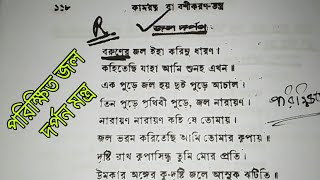 ১১৮ কামরত্ন বা বশীকরণ-তন্ত্র
R জল দর্পণ
বরুণের জল ইহা করিনু ধারণ।
কহিতেছি যাহা আমি শুনহ এখন॥
এক পুড়ে জল হয় দুই পুড়ে আচাল।
তিন পুড়ে পৃথিবী পুড়ে, জল নারায়ণ॥
নারায়ণ নারায়ণ কহি যে তোমায়।
জল ভরম করিতেছি আমি তোমার কৃপায়॥
দৃষ্টি রাখ কৃপাসিন্ধু তুমি মোর প্রতি।
অঙ্গের কু-দৃষ্টি জলে আসুক ঝটিতি॥
পরিক্ষিত জল
দর্পন মন্ত্র